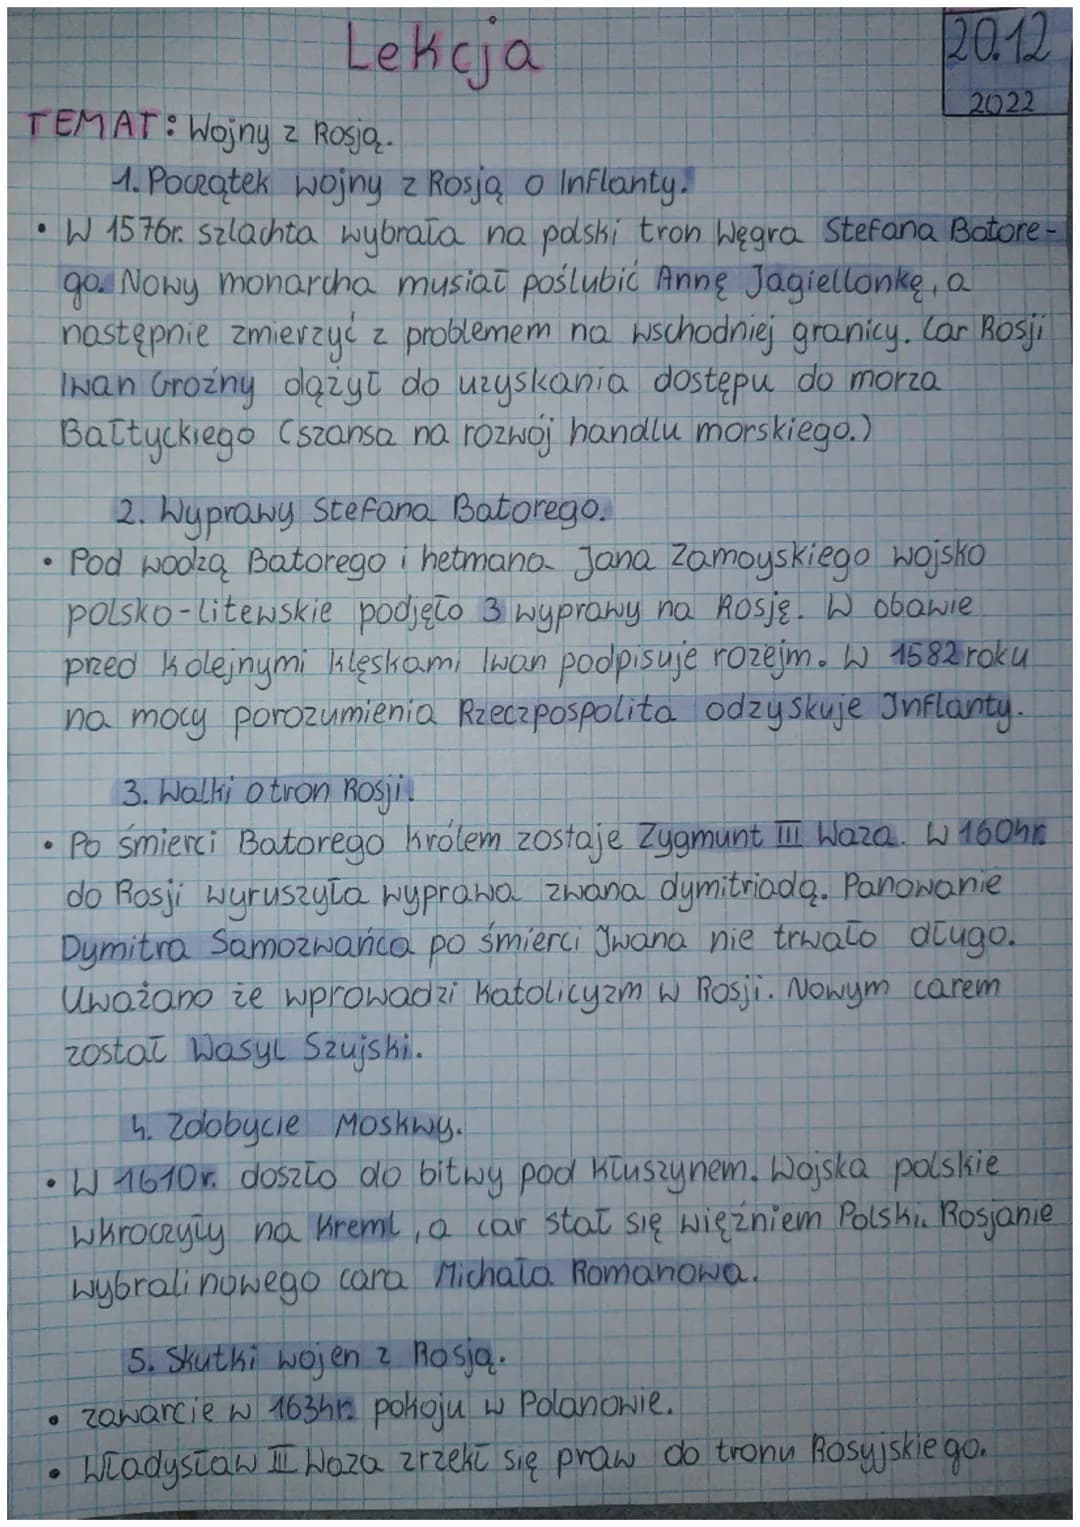 Lekcja
20.12
2022
TEMAT: Wojny z Rosją.
1. Początek wojny z Rosją o Inflanty.
• W 1576r. szlachta wybrała na polski tron Węgra Stefana Batore-
go. Nowy monarcha musiał poślubić Annę Jagiellonkę, a
następnie zmierzyć z problemem na wschodniej granicy. Car Rosji
Iwan Groźny dążył do uzyskania dostępu do morza
Bałtyckiego (szansa na rozwój handlu morskiego.)
2. Wyprawy Stefana Batorego.
• Pod wodzą Batorego i hetmana Jana Zamoyskiego wojsko
polsko-litewskie podjęło 3 wyprawy na Rosję. W obawie
przed kolejnymi klęskami Iwan podpisuje rozejm. W 1582 roku
na mocy porozumienia Rzeczpospolita odzyskuje Inflanty.
3. Walki o tron Rosji.
• Po śmierci Batorego królem zostaje Zygmunt III Waza. W 1604r.
do Rosji wyruszyła wyprawa zwana dymitriadą. Panowanie
Dymitra Samozwańca po śmierci Iwana nie trwało długo.
Uważano że wprowadzi katolicyzm w Rosji. Nowym carem
został Wasyl Szujski.
4. Zdobycie Moskwy.
• W 1610r. doszło do bitwy pod Kłuszynem. Wojska polskie
wkroczyły na Kreml, a car stał się więźniem Polski. Rosjanie
wybrali nowego cara Michała Romanowa.
5. Skutki wojen z Rosją.
• zawarcie w 1634r. pokoju w Polanowie.
• Władysław II Waza zrzekł się praw do tronu Rosyjskiego.